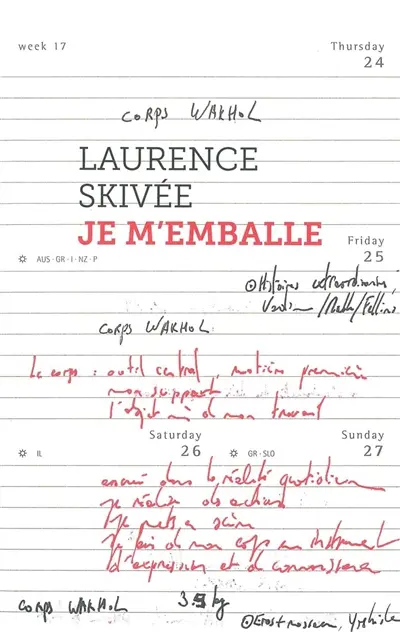 week 17
Thursday
24
CORPS WARHOL
LAURENCE
SKIVÉE
JE M'EMBALLE
Friday
25
AUS·GR·I·NZ·P
Histoires extraordinaires,
Vadim/Malle/Fellini
CORPS WARHOL
Le corps : outil central, matière première
mon support
l'objet de mon travail
Saturday
26
Sunday
27
IL
GR·SLO
ancré dans la réalité quotidienne
je réalise des actions
je mets en scène
je fais de mon corps un instrument
d'expression et de connaissance
CORPS WARHOL
3.5 kg